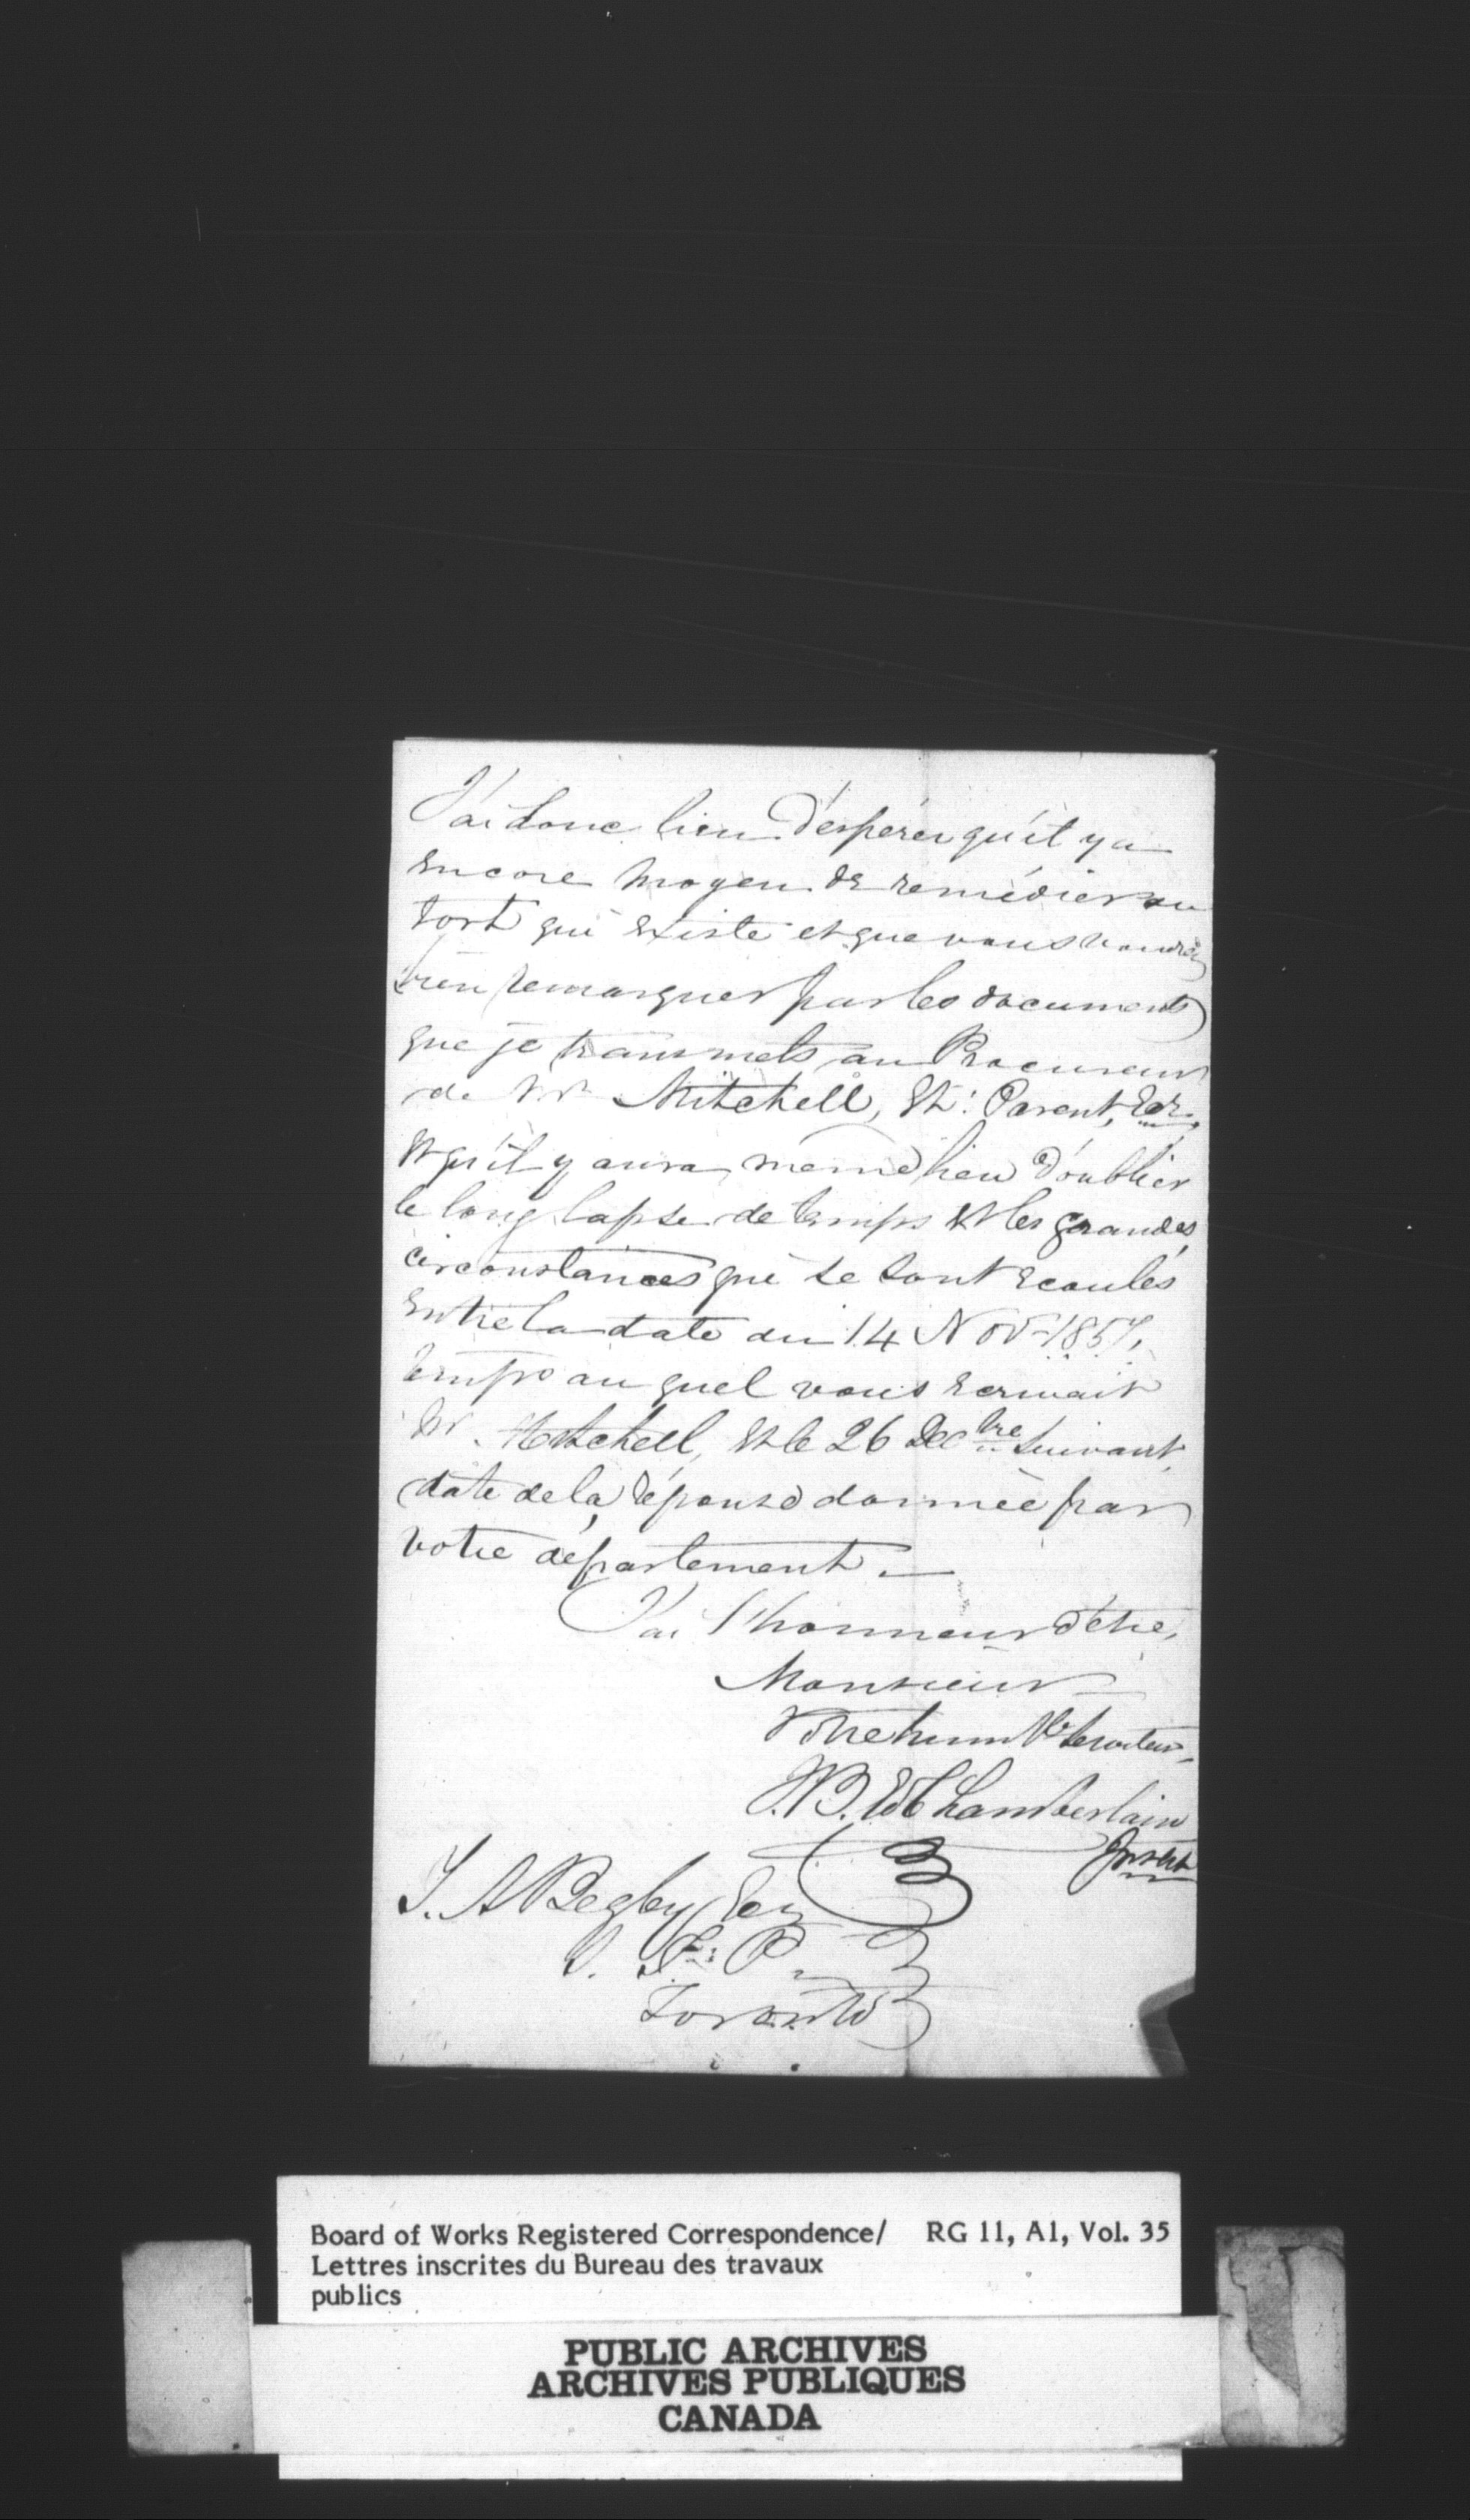 J'ai donc lieu d'espérer qu'il y a
encore moyen de remédier au
tort qui existe et que vous voudrez
bien remarquer par les documents
que je transmets au Procureur
de Mr Mitchell, Et: Parent, Ecr.,
et qu'il y aura même lieu d'oublier
le long lapse de temps et les grandes
circonstances qui se sont ecoulés
entre la date du 14 Nov 1857,
temps auquel vous ecrivait
Mr. Mitchell, et le 26 Decbre suivant,
date de la réponse donnée par
votre département. —
J'ai l'honneur d'être,
Monsieur
Votre humble Serviteur,
Chamberlain
J. A Begly Ecr
Toronto
Board of Works Registered Correspondence/ RG 11, A1, Vol. 35
Lettres inscrites du Bureau des travaux
publics
PUBLIC ARCHIVES
ARCHIVES PUBLIQUES
CANADA